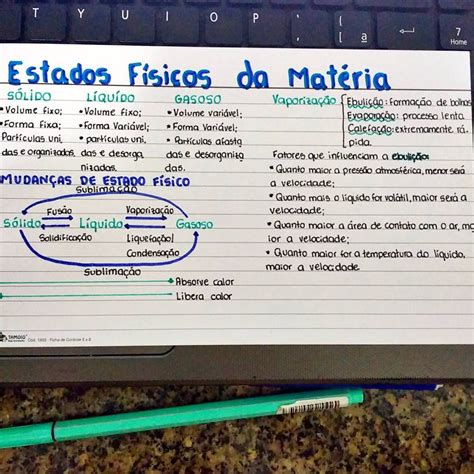 T Y U I O P
7
Home
Estados Físicos da Matéria
SÓLIDO
• Volume fixo;
• Forma Fixa;
• Partículas uni
das e organizadas.
LÍQUIDO
• Volume fixo;
• Forma Variável;
• partículas uni.
das e desorga
nizadas.
GASOSO
• Volume variável;
• Forma Variável;
• Partículas afasta
das e desorganiza
das.
Vaporização
Ebulição: Formação de bolhas
Evaporação: processo lento.
Calefação: extremamente rá
pida.
Fatores que influenciam a ebulição:
• Quanto maior a pressão atmosférica, menor será
a velocidade;
• Quanto mais o líquido for volátil, maior será a
velocidade;
• Quanto maior a área de contato com o ar, ma
ior a velocidade;
• Quanto maior for a temperatura do líquido,
maior a velocidade
MUDANÇAS DE ESTADO FÍSICO
Sublimação
Fusão
Vaporização
Sólido
Líquido
Gasoso
Solidificação
Liquefação/
Condensação
Sublimação
Absorve calor
Libera calor
TAMOIO